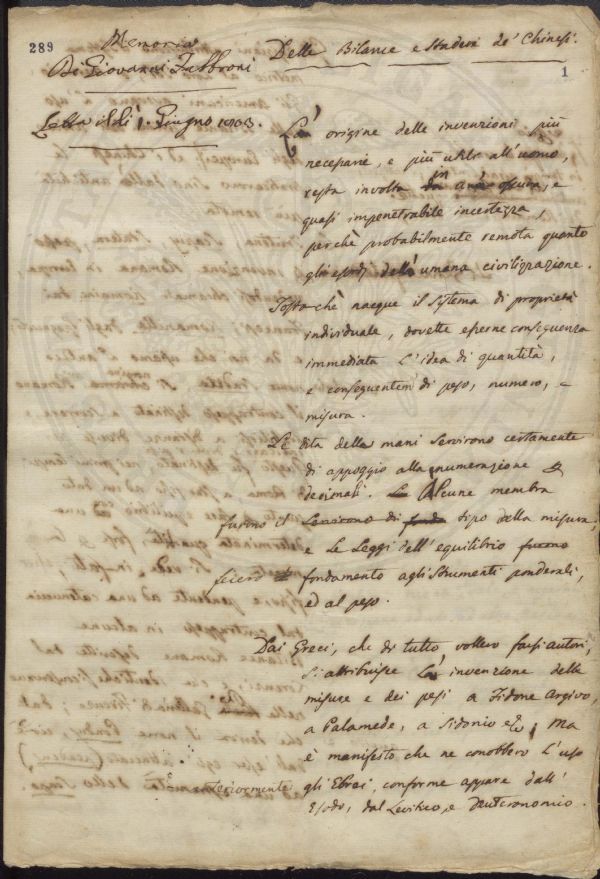 289
Memoria
Di Giovanni Fabbroni
Letta il dì 1. Giugno 1803.
Delle Bilance e Stadere de' Chinesi.
1
La origine delle invenzioni più
necessarie, e più utili all'uomo,
resta involta in oscura, e
quasi impenetrabile incertezza,
perchè probabilmente remota quanto
gli esordj della umana civilizzazione.
Tosto chè nacque il sistema di proprietà
individuale, dovette esserne conseguenza
immediata l'idea di quantità,
e conseguentem di peso, numero, e
misura.
Le dita delle mani servirono certamente
di appoggio alla numerazione
decimali. Alcune membra
furono il Servirono di tipo della misura,
e le Leggi dell'equilibrio furono
fecero fondamento agli strumenti ponderali,
ed al peso.
Dai Greci, che di tutto vollero farsi autori,
si attribuisce La invenzione delle
misure e dei pesi a Fidone Argivo,
a Palamede, a Sidonio ; Ma
è manifesto che ne conobbero l'uso
anteriormente gli Ebrei, conforme appare dall'
Esodo, dal Levitico, e Deuteronomio.